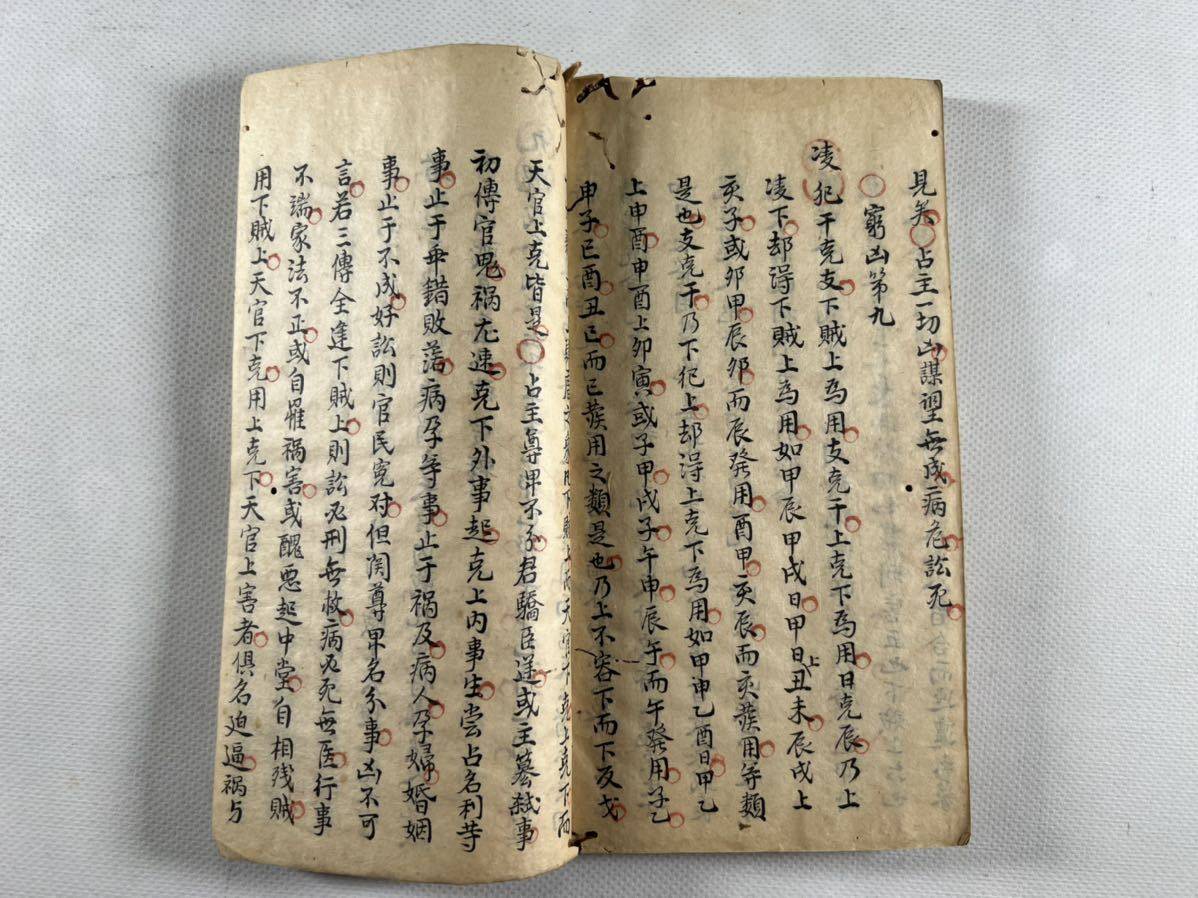 見矣○占主一切凶謀望無成病危訟死
○窮凶第九
凌犯干克支下賊上為用支克干上克下為用日克辰乃上
凌下却淂下賊上為用如甲辰甲戌日甲日上丑未辰戌上
亥子或卯甲辰卯而辰發用酉甲亥辰而亥發用等類
是也支克于乃下犯上却淂上克下為用如甲申乙酉日甲乙
上申酉申酉上卯寅或子甲戌子午申辰午而午發用子乙
申子巳酉丑巳而巳發用之類是也乃上不容下而下反戈
天官上克皆是○占主尊卑不
君驕臣逆或主篡弑事
初傳官鬼禍尤速克下外事起克上內事生嘗占名利等
事止于乖錯敗蕩病孕等事止于禍及病人孕婦婚姻
事止于不成好訟則官民
对但関尊卑名分事凶不可
言若三傳全逢下賊上則訟必刑無赦病必死無医行事
不端家法不正或自罹禍害或醜惡起中堂自相残賊
用下賊上天官下克用上克下天官上害者俱名迫逼禍与